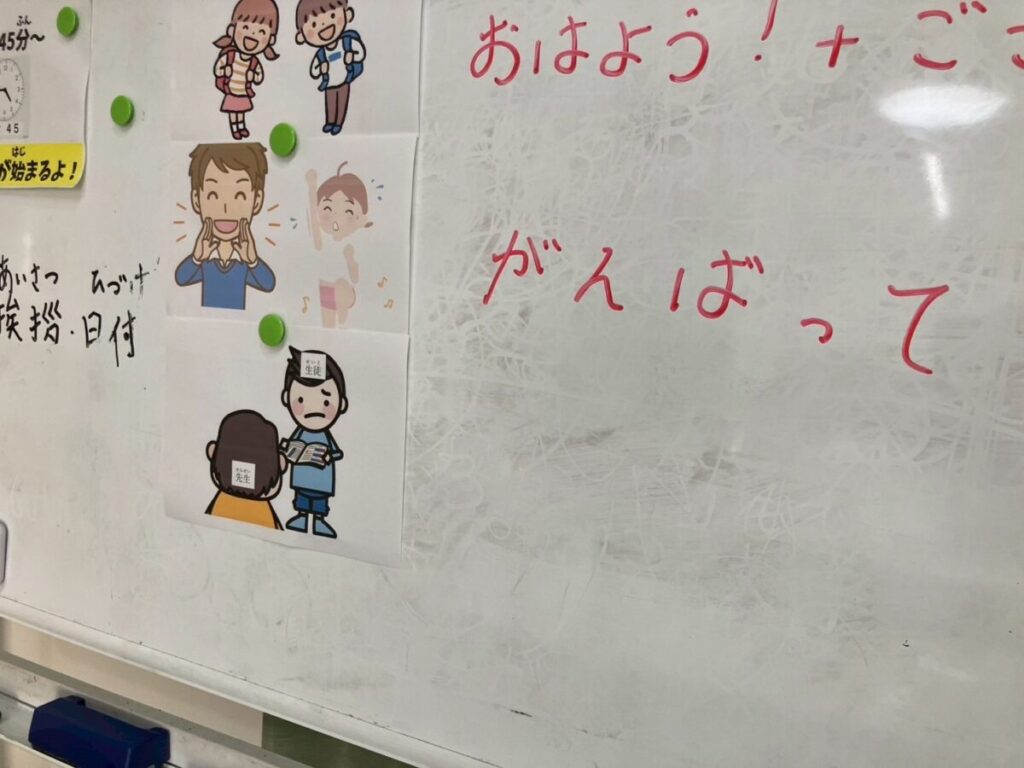 ふん
45分～
45
はじ
が始まるよ！
おはよう！+ ござ
がんばって
あいさつ ひづけ
挨拶・日付
せいと
生徒
せんせい
先生